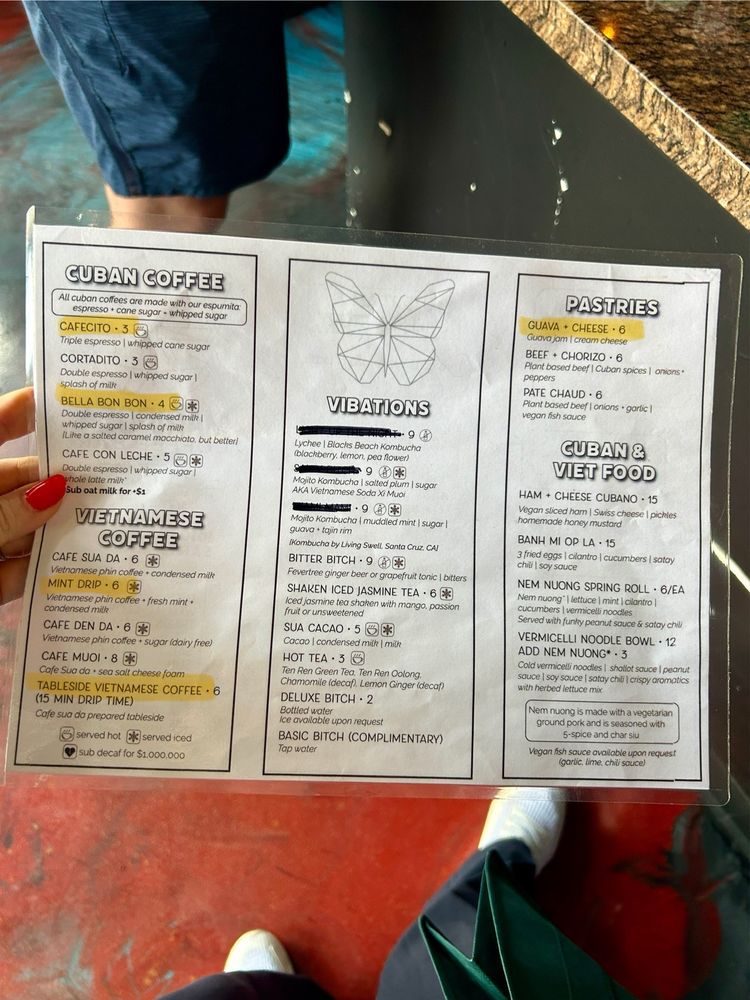 CUBAN COFFEE
All cuban coffees are made with our espumita:
espresso + cane sugar = whipped sugar
CAFECITO • 3
Triple espresso | whipped cane sugar
CORTADITO • 3
Double espresso | whipped sugar |
splash of milk
BELLA BON BON • 4
Double espresso | condensed milk |
whipped sugar | splash of milk
(Like a salted caramel macchiato, but better)
CAFE CON LECHE • 5
Double espresso | whipped sugar |
whole latte milk*
Sub oat milk for +$1
VIETNAMESE
COFFEE
CAFE SUA DA • 6
Vietnamese phin coffee + condensed milk
MINT DRIP • 6
Vietnamese phin coffee + fresh mint +
condensed milk
CAFE DEN DA • 6
Vietnamese phin coffee + sugar (dairy free)
CAFE MUOI • 8
Cafe Sua da + sea salt cheese foam
TABLESIDE VIETNAMESE COFFEE • 6
(15 MIN DRIP TIME)
Cafe sua da prepared tableside
served hot served iced
sub decaf for $1,000,000
VIBATIONS
• 9
Lychee | Blacks Beach Kombucha
(blackberry, lemon, pea flower)
9
Mojito Kombucha | salted plum | sugar
AKA Vietnamese Soda Xi Muoi
• 9
Mojito Kombucha | muddled mint | sugar |
guava + tajin rim
(Kombucha by Living Swell, Santa Cruz, CA)
BITTER BITCH • 9
Fevertree ginger beer or grapefruit tonic | bitters
SHAKEN ICED JASMINE TEA • 6
Iced jasmine tea shaken with mango, passion
fruit or unsweetened
SUA CACAO • 5
Cacao | condensed milk | milk
HOT TEA • 3
Ten Ren Green Tea, Ten Ren Oolong,
Chamomile (decaf), Lemon Ginger (decaf)
DELUXE BITCH • 2
Bottled water
Ice available upon request
BASIC BITCH (COMPLIMENTARY)
Tap water
PASTRIES
GUAVA + CHEESE • 6
Guava jam | cream cheese
BEEF + CHORIZO • 6
Plant based beef | Cuban spices | onions+
peppers
PATE CHAUD • 6
Plant based beef | onions + garlic |
vegan fish sauce
CUBAN &
VIET FOOD
HAM + CHEESE CUBANO • 15
Vegan sliced ham | Swiss cheese | pickles
homemade honey mustard
BANH MI OP LA • 15
3 fried eggs | cilantro | cucumbers | satay
chili | soy sauce
NEM NUONG SPRING ROLL • 6/EA
Nem nuong* | lettuce | mint | cilantro |
cucumbers | vermicelli noodles
Served with funky peanut sauce & satay chili
VERMICELLI NOODLE BOWL • 12
ADD NEM NUONG* • 3
Cold vermicelli noodles | shallot sauce | peanut
sauce | soy sauce | satay chili | crispy aromatics
with herbed lettuce mix
Nem nuong is made with a vegetarian
ground pork and is seasoned with
5-spice and char siu
Vegan fish sauce available upon request
(garlic, lime, chili sauce)